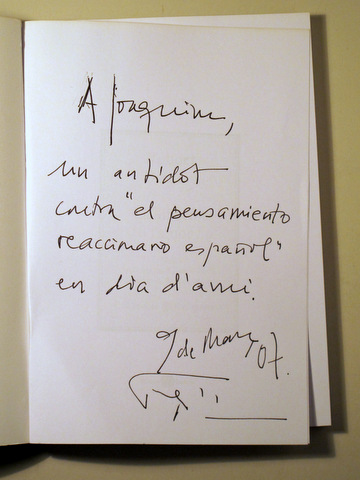 A Joaquim,
un antidot
contra "el pensamiento
reaccionario español"
en dia d'avui.
de Març 07.